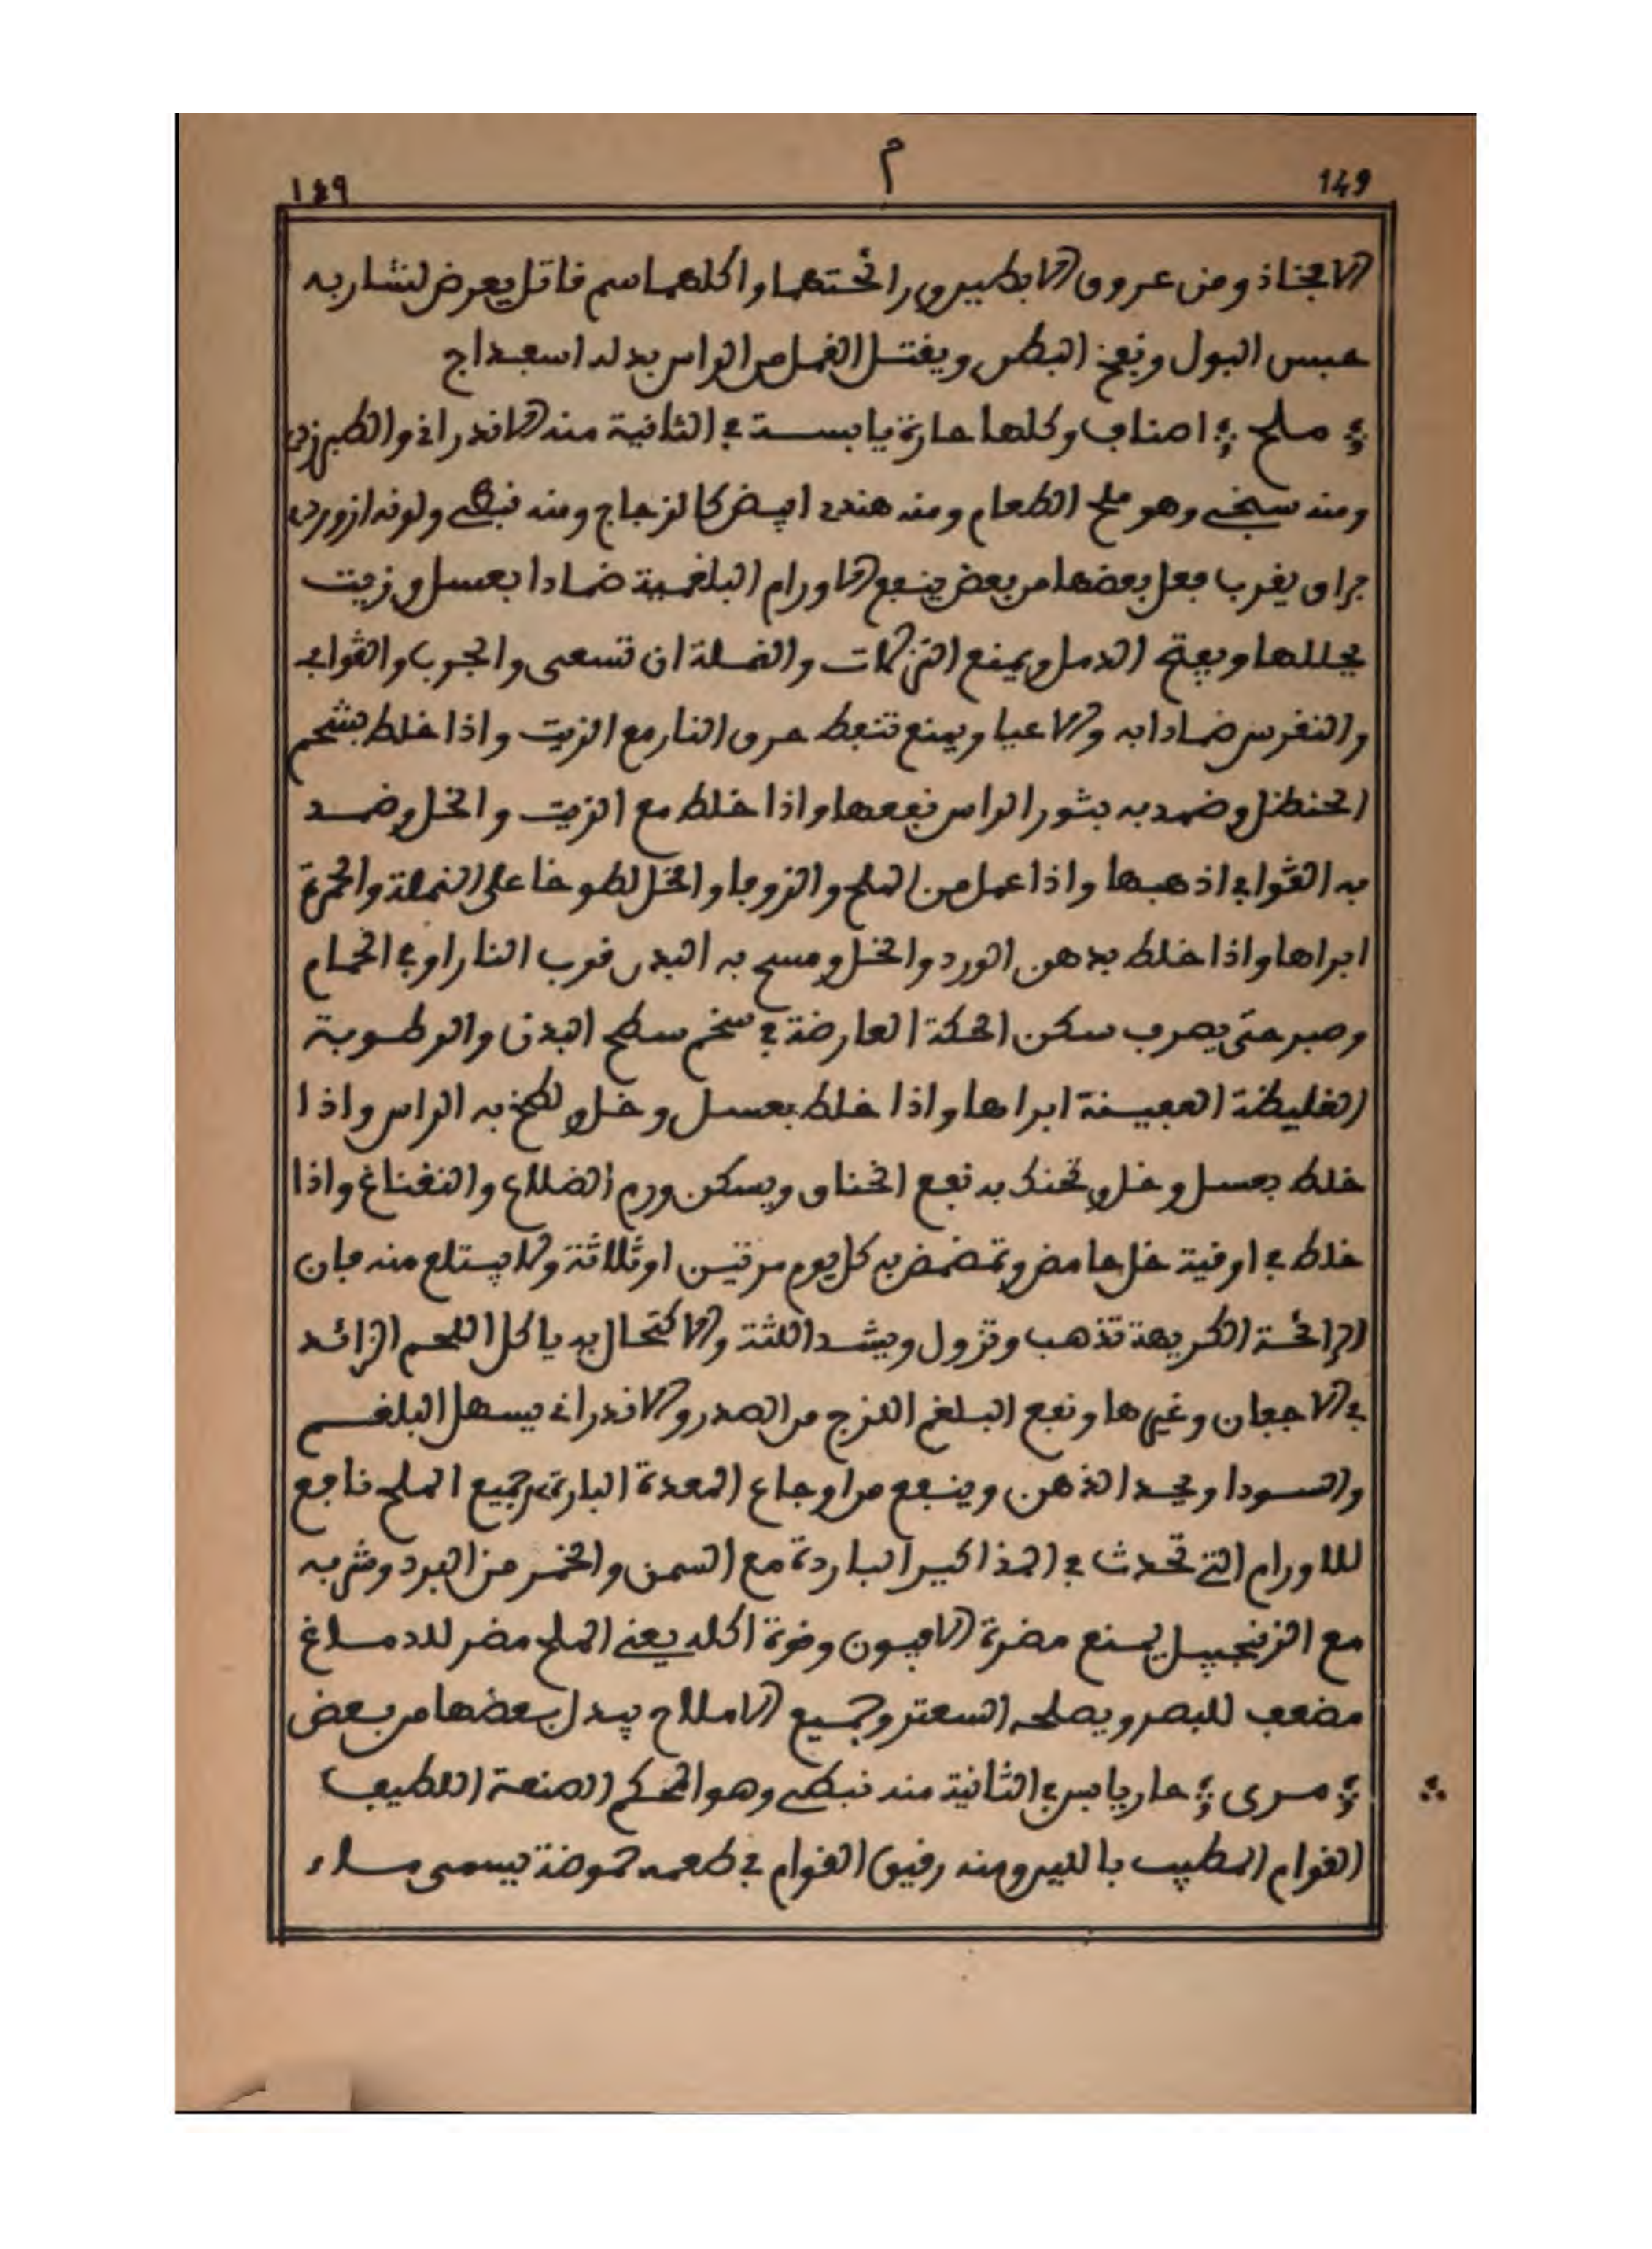 149
م
١٤٩
الافخاذ ومن عروق الابطين ورائحتهما واكلهما سم قاتل يعرض لشاربه
حبس البول ونفخ البطن ويقتل القمل من الراس بدله اسفيداج
ملح اصناف وكلها حارة يابسة في الثانية منه الاندراني والطبرزدي
ومنه سبخي وهو ملح الطعام ومنه هندي ابيض كالزجاج ومنه نبطي ولونه ازوردي
براق يقرب فعل بعضها من بعض ينفع الاورام البلغمية ضمادا بعسل وزيت
يحللها ويفتح الدمل ويمنع النزلات والنملة ان تسعى والجرب والقوابي
والنقرس ضمادا به والاعيا ويمنع تنفط حرق النار مع الزيت واذا خلط بشحم
الحنظل وضمد به بثور الراس نفعها واذا خلط مع الزيت والخل وضمد
به القوابي اذهبها واذا عمل من الملح والزوفا والخل لطوخا على النملة والحمرة
ابراها واذا خلط بدهن الورد والخل ومسح به البدن قرب النار او في الحمام
وصبر حتى يعرق سكن الحكة العارضة في سخم سطح البدن والرطوبة
الغليظة العفينة ابراها واذا خلط بعسل وخل ولطخ به الراس واذا
خلط بعسل وخل وتحنك به نفع الخناق ويسكن ورم العضلاع والنغناغ واذا
خلط في اوقية خل حامض وتمضمض به كل يوم مرتين او ثلاثة ولا يبتلع منه فان
الرائحة الكريهة تذهب وتزول ويشد اللثة والاكتحال به ياكل اللحم الزائد
في الاجفان وغيرها ونفع البلغم اللزج من الصدر والاندراني يسهل البلغم
والسودا ويحد الذهن وينفع من اوجاع المعدة الباردة جميع الملح نافع
للاورام التي تحدث في المذاكير الباردة مع السمن والخمر من البرد وشربه
مع الزنجبيل يمنع مضرة الافيون وضرة اكله يعني الملح مضر للدماغ
مضعف للبصر ويصلحه السعتر وجميع الاملاح يبدل بعضها من بعض
مرى حار يابس في الثانية منه نبطي وهو المحكم الصنعة اللطيف
القوام المطيب بالليم ومنه رقيق القوام في طعمه حموضة يسمى ماء